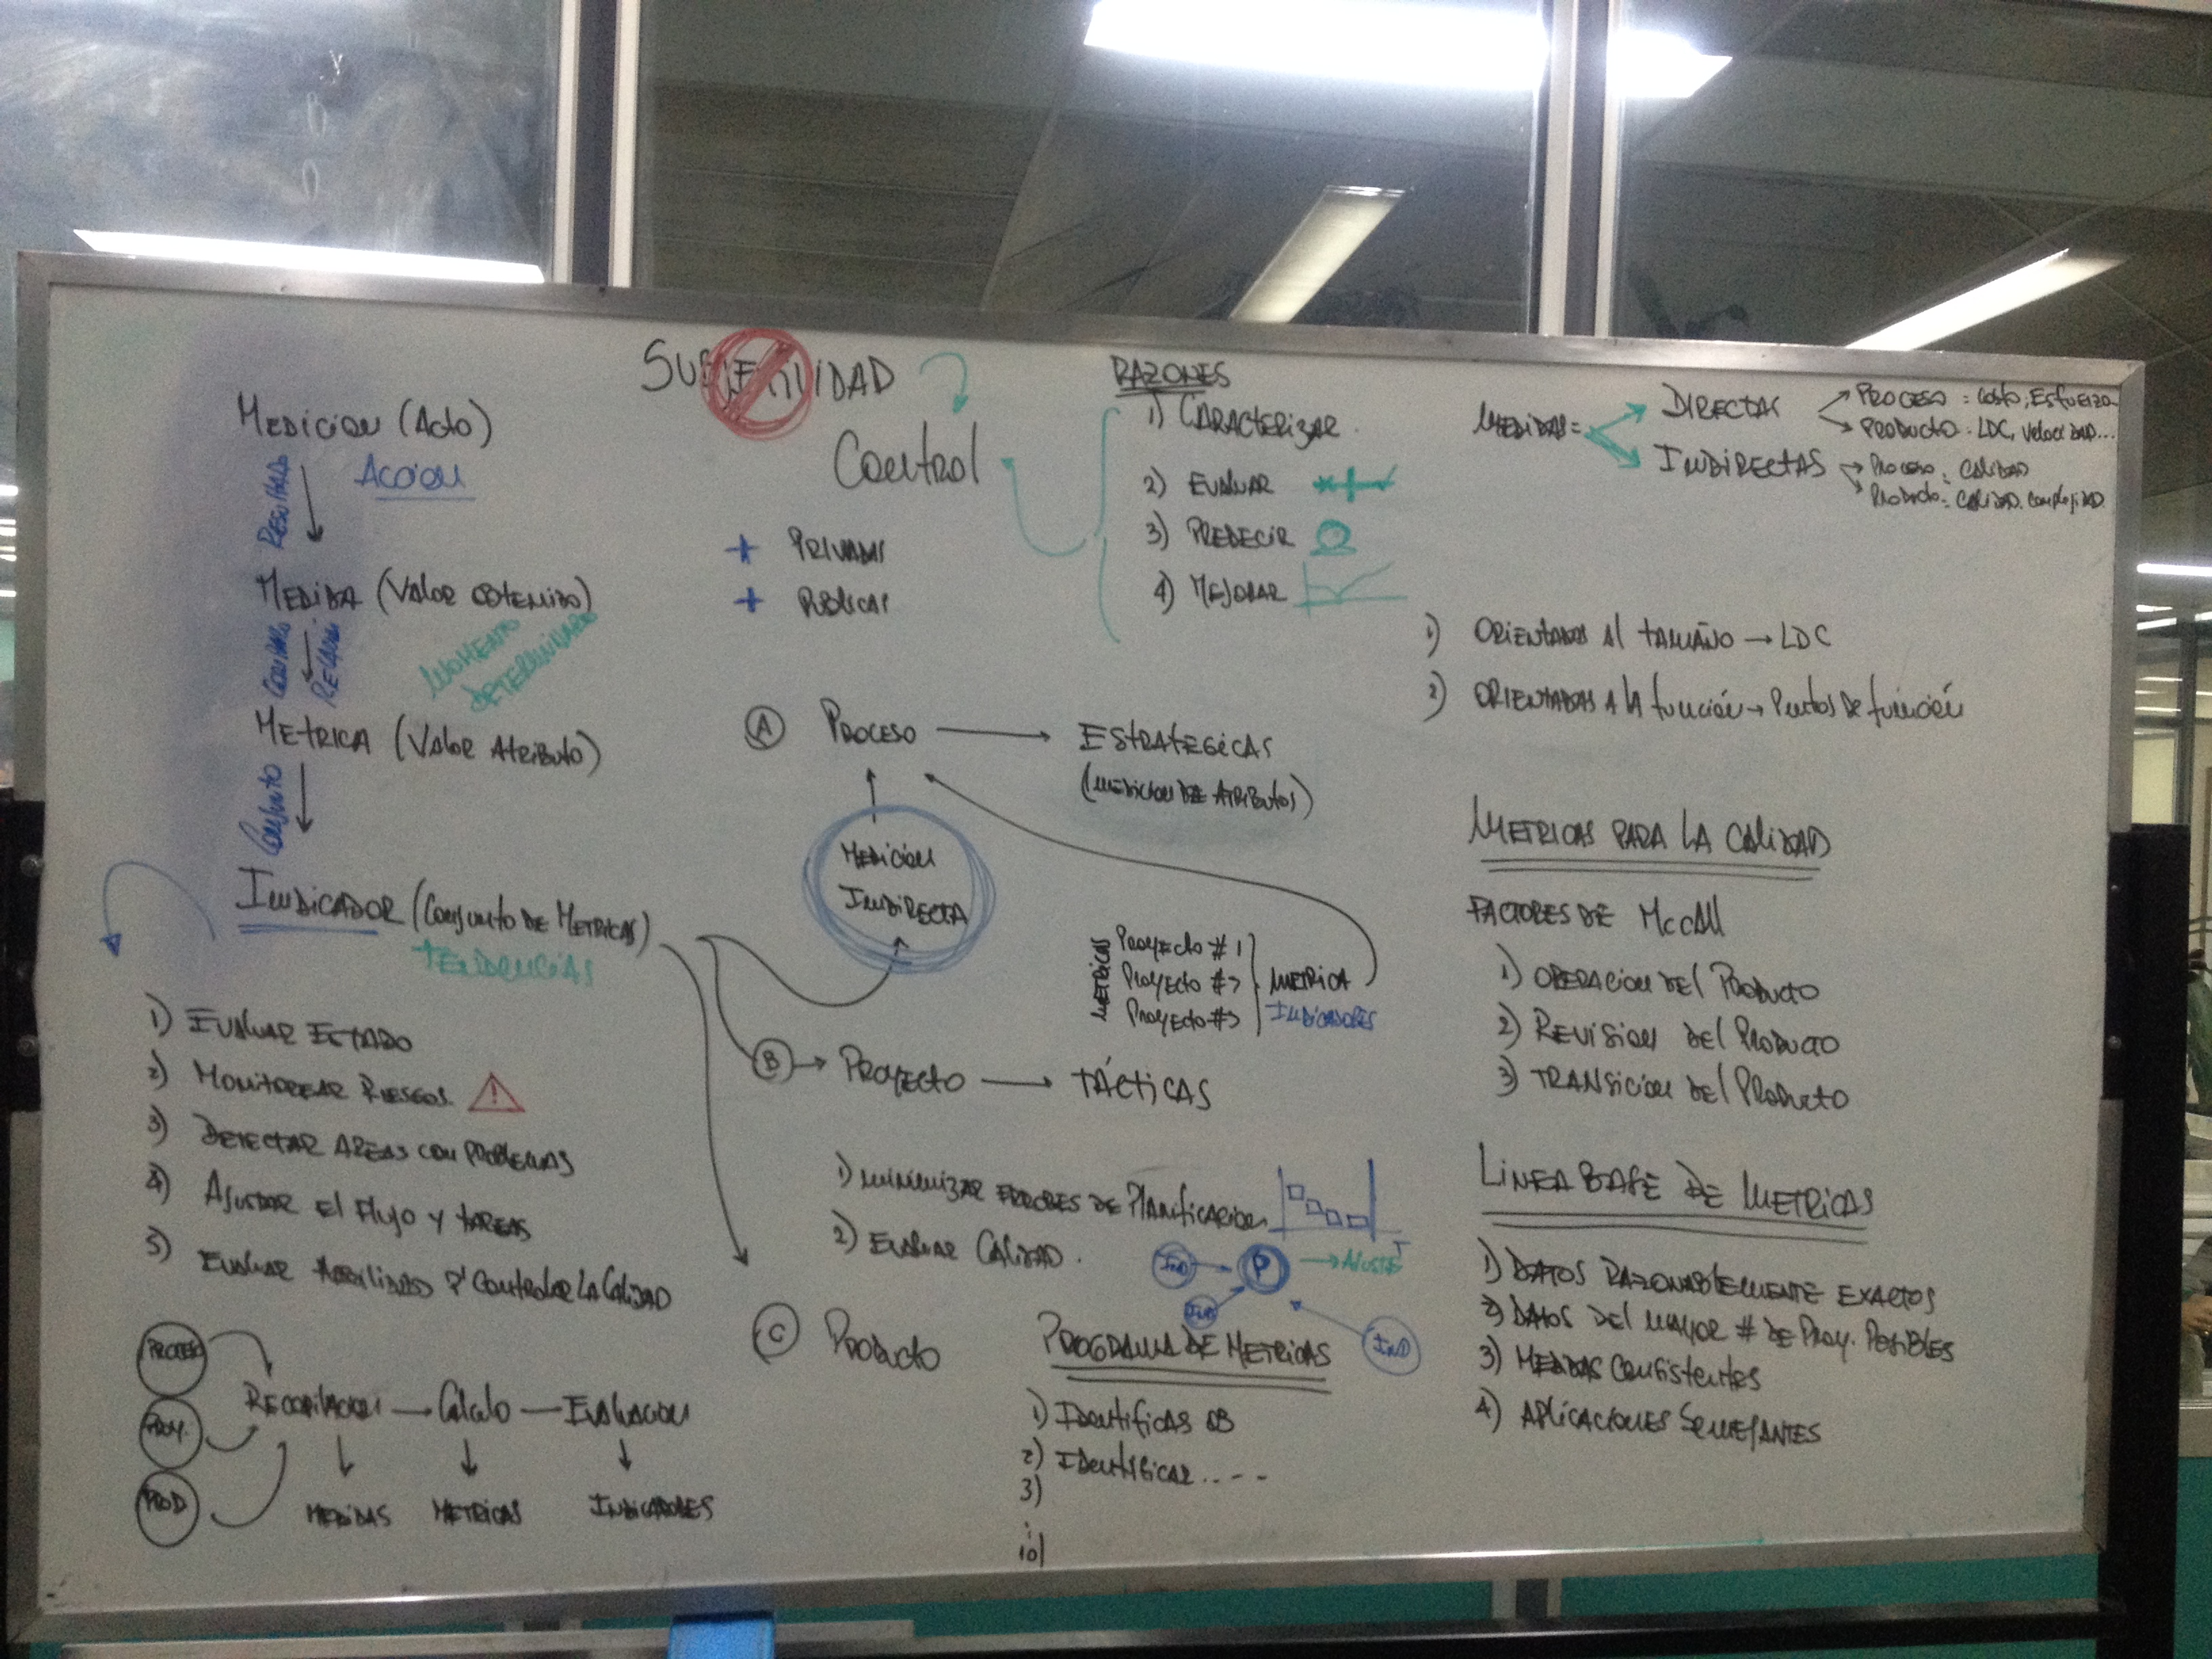 SUBJETIVIDAD
Control
+ PRIVADAS
+ PUBLICAS
MEDICION (Acto)
ACCION
RESULTADO
MEDIDA (VALOR OBTENIDO)
MOMENTO
DETERMINADO
METRICA (VALOR ATRIBUTO)
CONJUNTO
INDICADOR (CONJUNTO DE METRICAS)
TENDENCIAS
1) EVALUAR ESTADO
2) MONITOREAR RIESGOS
3) DETECTAR AREAS CON PROBLEMAS
4) AJUSTAR El Flujo y tAREAS
5) EVALUAR P' CONTROLAR LA CALIDAD
PROCESO
PROY.
PROD
RECOPILACION → Calculo → EVALUACION
MEDIDAS METRICAS INDICADORES
RAZONES
1) CARACTERIZAR
2) EVALUAR
3) PREDECIR
4) MEJORAR
A PROCESO → ESTRATEGICAS
(MEDICION DE ATRIBUTOS)
MEDICION
INDIRECTA
METRICAS
PROYECTO #1
PROYECTO #2
PROYECTO #3
METRICA
INDICADORES
B → PROYECTO → TÁCTICAS
1) MINIMIZAR ERRORES DE PLANIFICACION
2) EVALUAR CALIDAD.
T
IND
P
→ AJUSTE
IND
IND
C PRODUCTO
PROGRAMA DE METRICAS
1) IDENTIFICAS OB
2) IDENTIFICAR.....
3)
10)
MEDIDAS =
DIRECTAS
PROCESO: COSTO, ESFUERZO
PRODUCTO: LDC, VELOCIDAD...
INDIRECTAS
PROCESO: CALIDAD
PRODUCTO: CALIDAD. COMPLEJIDAD
1) ORIENTADAS Al tAMAÑO → LDC
2) ORIENTADAS A LA función → Puntos De función
METRICAS PARA LA CALIDAD
FACTORES DE McCAll
1) OPERACION DEl PRODUCTO
2) REVISION DEl PRODUCTO
3) TRANSICION DEl PRODUCTO
LINEA BASE DE METRICAS
1) DATOS RAZONABLEMENTE EXACTOS
2) DATOS DEl MAYOR # DE PROY. POSIBLES
3) MEDIDAS CONSISTENTES
4) APLICACIONES SEMEJANTES